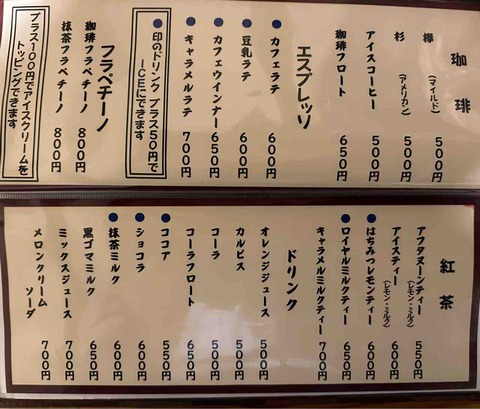 珈琲
欅(マイルド) 500円
杉(アメリカン) 500円
アイスコーヒー 500円
珈琲フロート 650円
エスプレッソ
●カフェラテ 600円
●豆乳ラテ 600円
●カフェウインナー 650円
●キャラメルラテ 700円
●印のドリンク プラス50円で
ICEにできます
フラペチーノ
珈琲フラペチーノ 800円
抹茶フラペチーノ 800円
プラス100円でアイスクリームを
トッピングできます
紅茶
アフタヌーンティー(レモン・ミルク) 550円
アイスティー(レモン・ミルク) 600円
●はちみつレモンティー 600円
●ロイヤルミルクティー 650円
キャラメルミルクティー 700円
ドリンク
オレンジジュース 500円
カルピス 500円
コーラ 500円
コーラフロート 650円
●ココア 550円
●ショコラ 600円
●抹茶ミルク 600円
黒ゴマミルク 650円
ミックスジュース 700円
メロンクリーム
ソーダ 700円